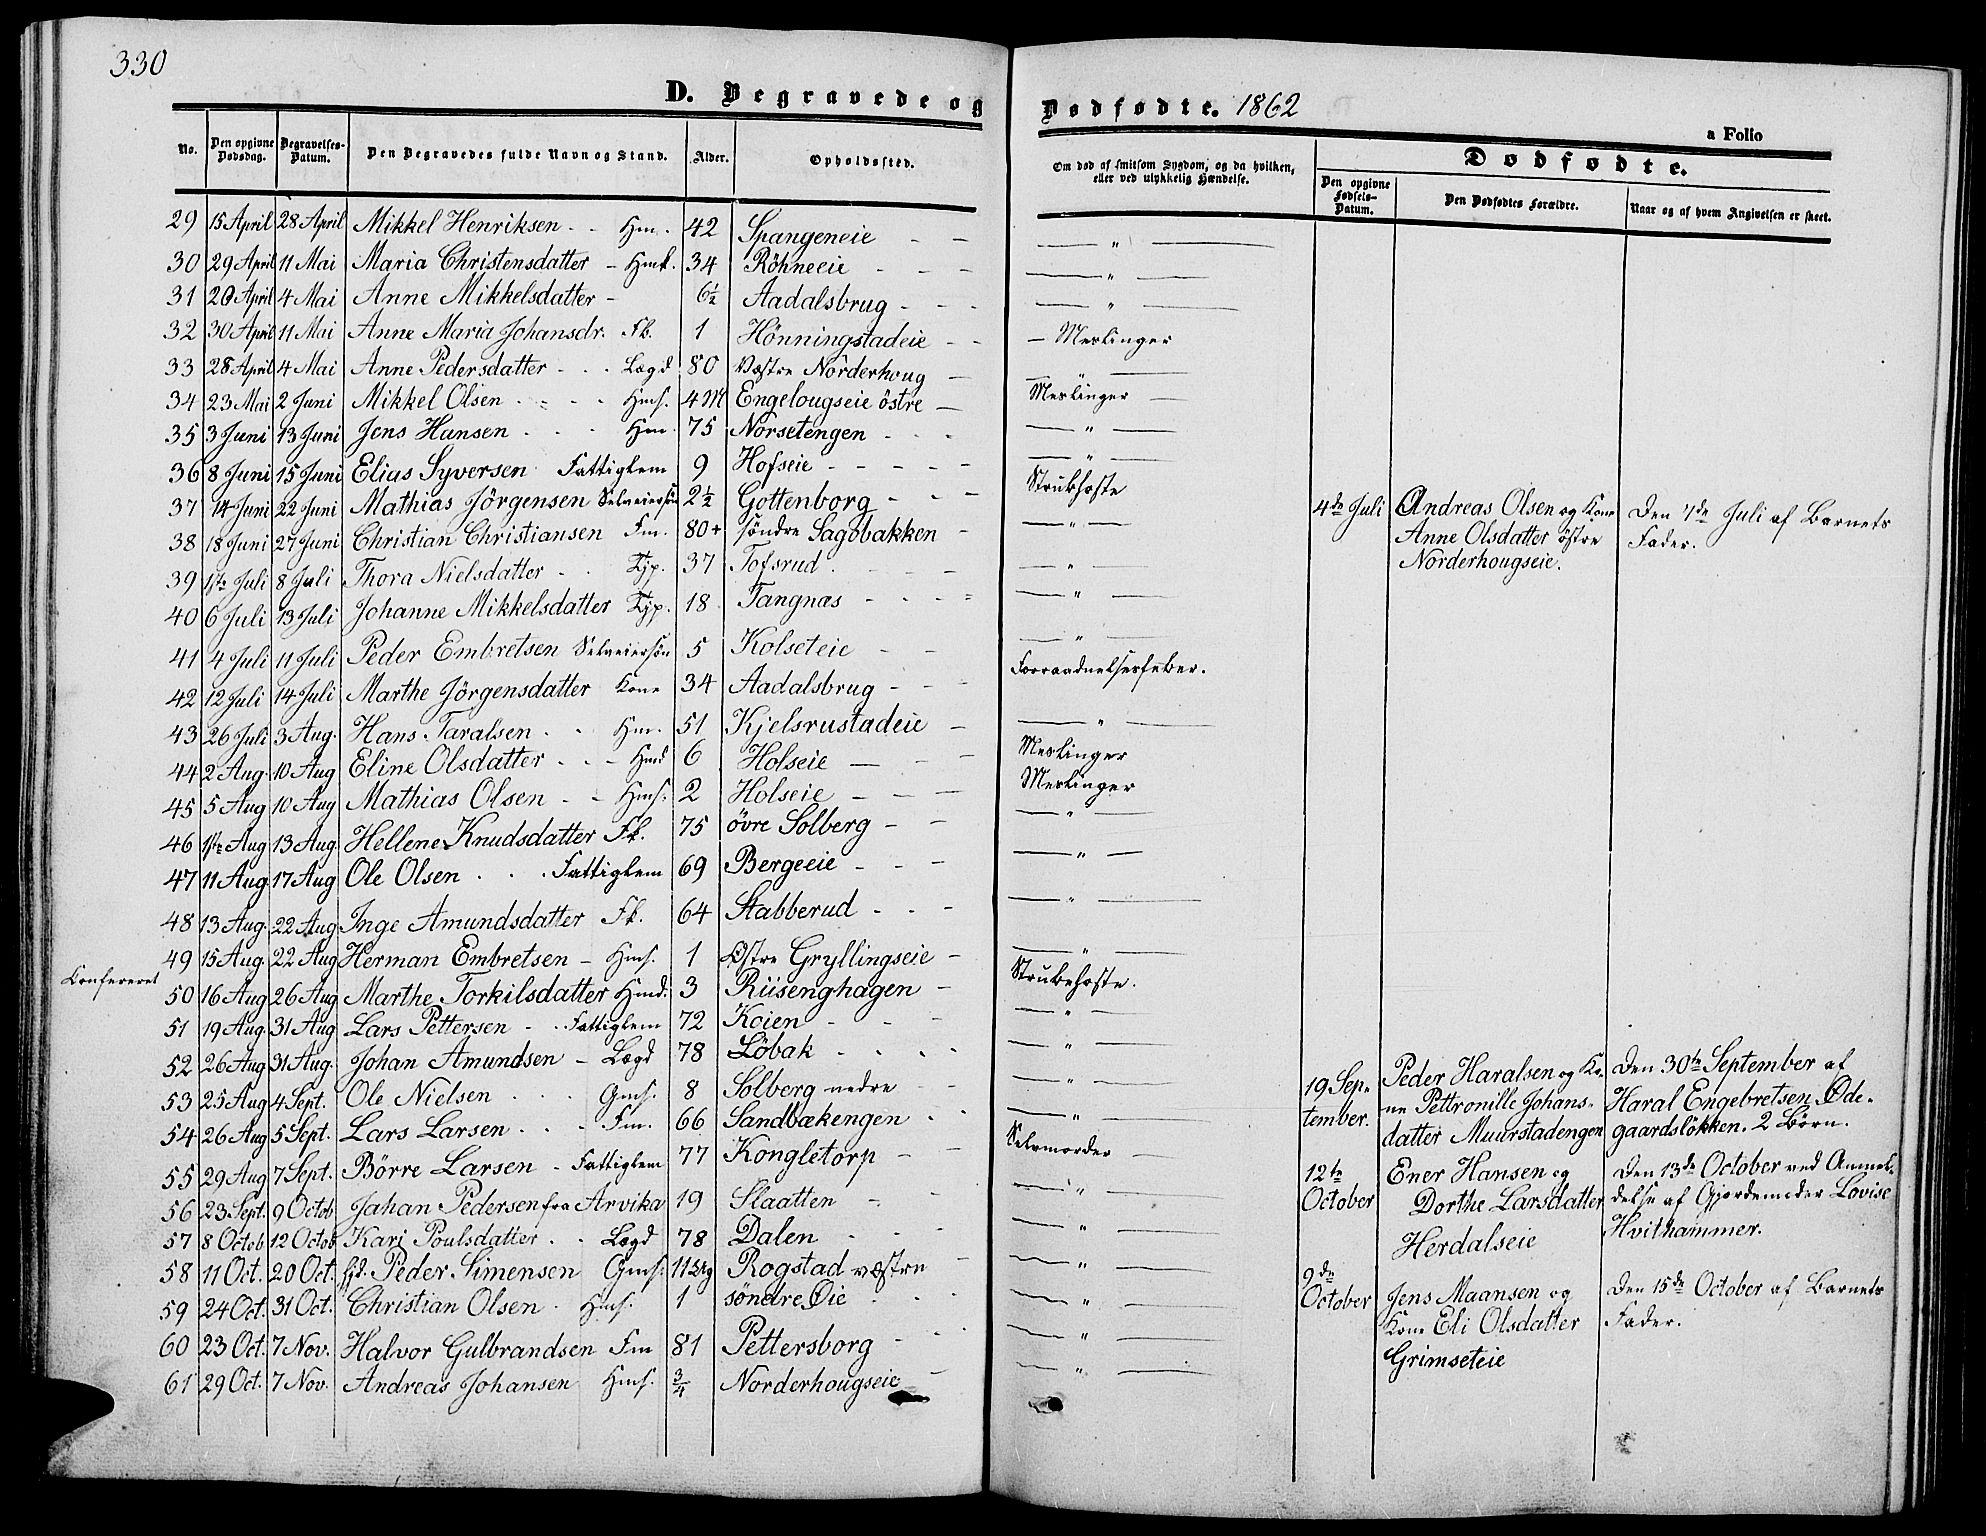 330
D. Begravede og Dødfødte. 1862
a Folio
No. Den opgivne Dødsdag. Begravelses-Datum. Den Begravedes fulde Navn og Stand. Alder. Opholdssted. Om død af smitsom Sygdom, og da hvilken, eller ved ulykkelig Hændelse.
Dødfødte.
Den opgivne Fødsels-Datum. Den Dødfødtes Forældre. Naar og af hvem Angivelsen er skeet.
29 15 April 28 April Mikkel Henriksen - - Hm. 42 Spangeneie - - — " —
30 29 April 11 Mai Maria Christensdatter - Hmk. 34 Röhneeie - - - — " —
31 20 April 4 Mai Anne Mikkelsdatter - 6½ Aadalsbrug - - - — " —
32 30 April 11 Mai Anne Maria Johansdr. Fb. 1 Hönningstadeie - - - Meslinger
33 28 April 4 Mai Anne Pedersdatter - - - Lægd 80 Væstre Norderhoug - — " —
34 23 Mai 2 Juni Mikkel Olsen - - - - Hms. 4 M Engelougseie östre - Meslinger —
35 3 Juni 13 Juni Jens Hansen - - - Hm. 75 Norsetengen - - - — " —
36 8 Juni 15 Juni Elias Syversen Fattiglem 9 Hofseie - - - - - — " —
37 14 Juni 22 Juni Mathias Jörgensen Selveiersön 2½ Gottenborg - - - Strubhoste
38 18 Juni 27 Juni Christian Christiansen Fm. 80+ söndre Sagobakken - — " —
39 1ste Juli 8 Juli Thora Nielsdatter - - Tjp. 37 Tofsrud - - - — " —
40 6 Juli 13 Juli Johanne Mikkelsdatter Tjp. 18 Tangnæs - - - - — " —
41 4 Juli 11 Juli Peder Embretsen Selveiersön 5 Kolseteie - - — " —
42 12 Juli 14 Juli Marthe Jörgensdatter Kone 34 Aadalsbrug - - - Forraadnelsesfeber.
43 26 Juli 3 Aug. Hans Taralsen - - Hm. 51 Kjelsrustadeie - — " —
44 2 Aug. 10 Aug Eline Olsdatter - - - Hmd 6 Holseie - - - Meslinger
45 5 Aug 10 Aug Mathias Olsen - - Hms. 2 Holseie - - - Meslinger
46 1ste Aug 13 Aug Hellene Knudsdatter Fk. 75 övre Solberg - - — " —
47 11 Aug. 17 Aug Ole Olsen . . . Fattiglem 69 Bergeeie - - - — " —
48 13 Aug. 22 Aug Inge Amundsdatter Fk. 64 Stabberud - - - — " —
49 15 Aug. 22 Aug Herman Embretsen - Hms. 1 Østre Gryllingseie - — " —
Konfereret
50 16 Aug 26 Aug Marthe Torkilsdatter Hmd. 3 Riisenghagen - Strubehoste.
51 19 Aug. 31 Aug Lars Pettersen - - Fattiglem 72 Koien - - - — " —
52 26 Aug 31 Aug. Johan Amundsen - Lægd 78 Löbak - - - - — " —
53 25 Aug 4 Sept. Ole Nielsen . . . Gms. 8 Solberg nedre - — " —
54 26 Aug 5 Sept. Lars Larsen - - - Fm. 66 Sandbækengen - - — " —
55 29 Aug 7 Sept. Börre Larsen - Fattiglem 77 Kongletorp - - Selvmorder —
56 23 Sept. 9 Octob Johan Pedersen fra Arvika 19 Slaatten - - — " —
57 8 Octob 12 Octob Kari Poulsdatter - - Lægd 78 Dalen - - — " —
58 11 Oct. 20 Oct. hd. Peder Simensen Gms. 11 Dg Rogstad væstre - — " —
59 24 Oct. 31 Oct. Christian Olsen - Hms. 1 söndre Øie - - - — " —
60 23 Oct. 7 Nov. Halvor Gulbrandsen Fm 81 Pettersborg - - - — " —
61 29 Oct. 7 Nov. Andreas Johansen Hms. ¾ Norderhougseie - — " —
4de Juli Andreas Olsen og Kone Den 7de Juli af Barnets
Anne Olsdatter östre Fader.
Norderhougseie.
19 Sep- Peder Haralsen og Ko- Den 30te September af
tember. ne Pettronille Johans- Haral Engebretsen Øde-
datter Muurstadengen gaardslökken. 2 Börn.
12te Ener Hansen og Den 13de October ved Anmel-
October Dorthe Larsdatter delse af Gjordemoder Lovise
Herdalseie Hvithammer.
9de
October Jens Maansen og Den 15de October af Barnets
Kone Eli Olsdatter Fader.
Grimseteie